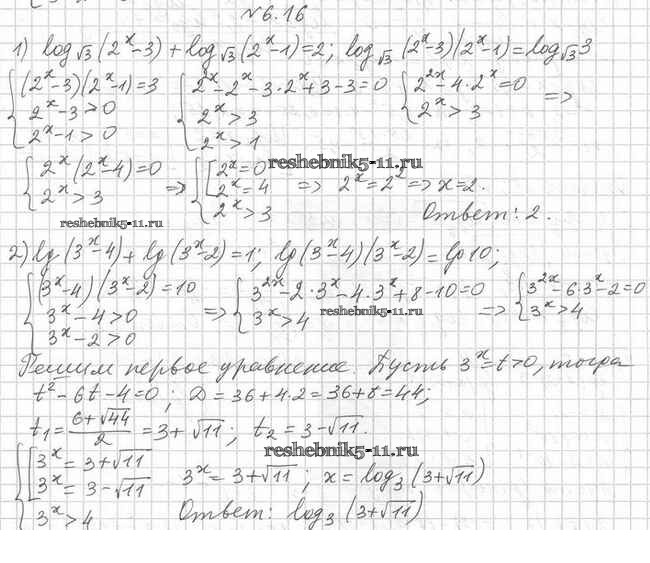 №6.16
1) log√3 (2^x-3) + log√3 (2^x-1) = 2; log√3 (2^x-3)(2^x-1) = log√3 3
{ (2^x-3)(2^x-1)=3 { 2^2x-2^x-3·2^x+3-3=0 { 2^2x-4·2^x=0 =>
2^x-3>0 2^x>3 2^x>3
2^x-1>0 2^x>1
{ 2^x(2^x-4)=0 => { [ 2^x=0 => 2^x=2^2 => x=2.
2^x>3 2^x=4
2^x>3
reshebnik5-11.ru
reshebnik5-11.ru
Ответ: 2.
2) lg(3^x-4)+lg(3^x-2)=1; lg(3^x-4)(3^x-2)=lg10;
{ (3^x-4)(3^x-2)=10 => { 3^2x-2·3^x-4·3^x+8-10=0 => { 3^2x-6·3^x-2=0
3^x-4>0 3^x>4 3^x>4
3^x-2>0
reshebnik5-11.ru
Решим первое уравнение. Пусть 3^x=t>0, тогда
t^2-6t-4=0; D=36+4·2=36+8=44;
t1=(6+√44)/2=3+√11; t2=3-√11.
reshebnik5-11.ru
{ [ 3^x=3+√11 3^x=3+√11; x=log3(3+√11)
3^x=3-√11
3^x>4 Ответ: log3(3+√11)